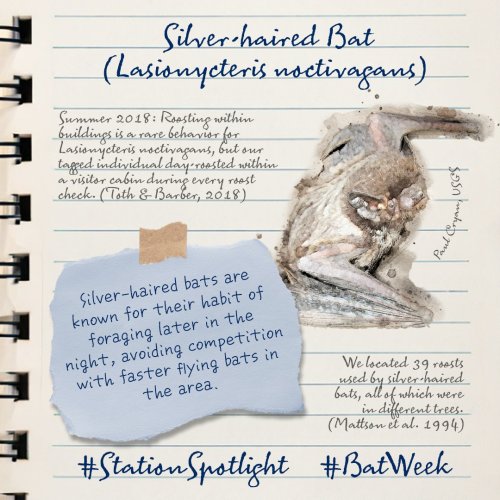 Silver-haired Bat
(Lasionycteris noctivagans)
Summer 2018: Roosting within
buildings is a rare behavior for
Lasionycteris noctivagans, but our
tagged individual day-roosted within
a visitor cabin during every roost
check. (Toth & Barber, 2018)
Paul Cryan, USGS
Silver-haired bats are
known for their habit of
foraging later in the
night, avoiding competition
with faster flying bats in
the area.
We located 39 roosts
used by silver-haired
bats, all of which were
in different trees.
(Mattson et al. 1994)
#StationSpotlight #BatWeek